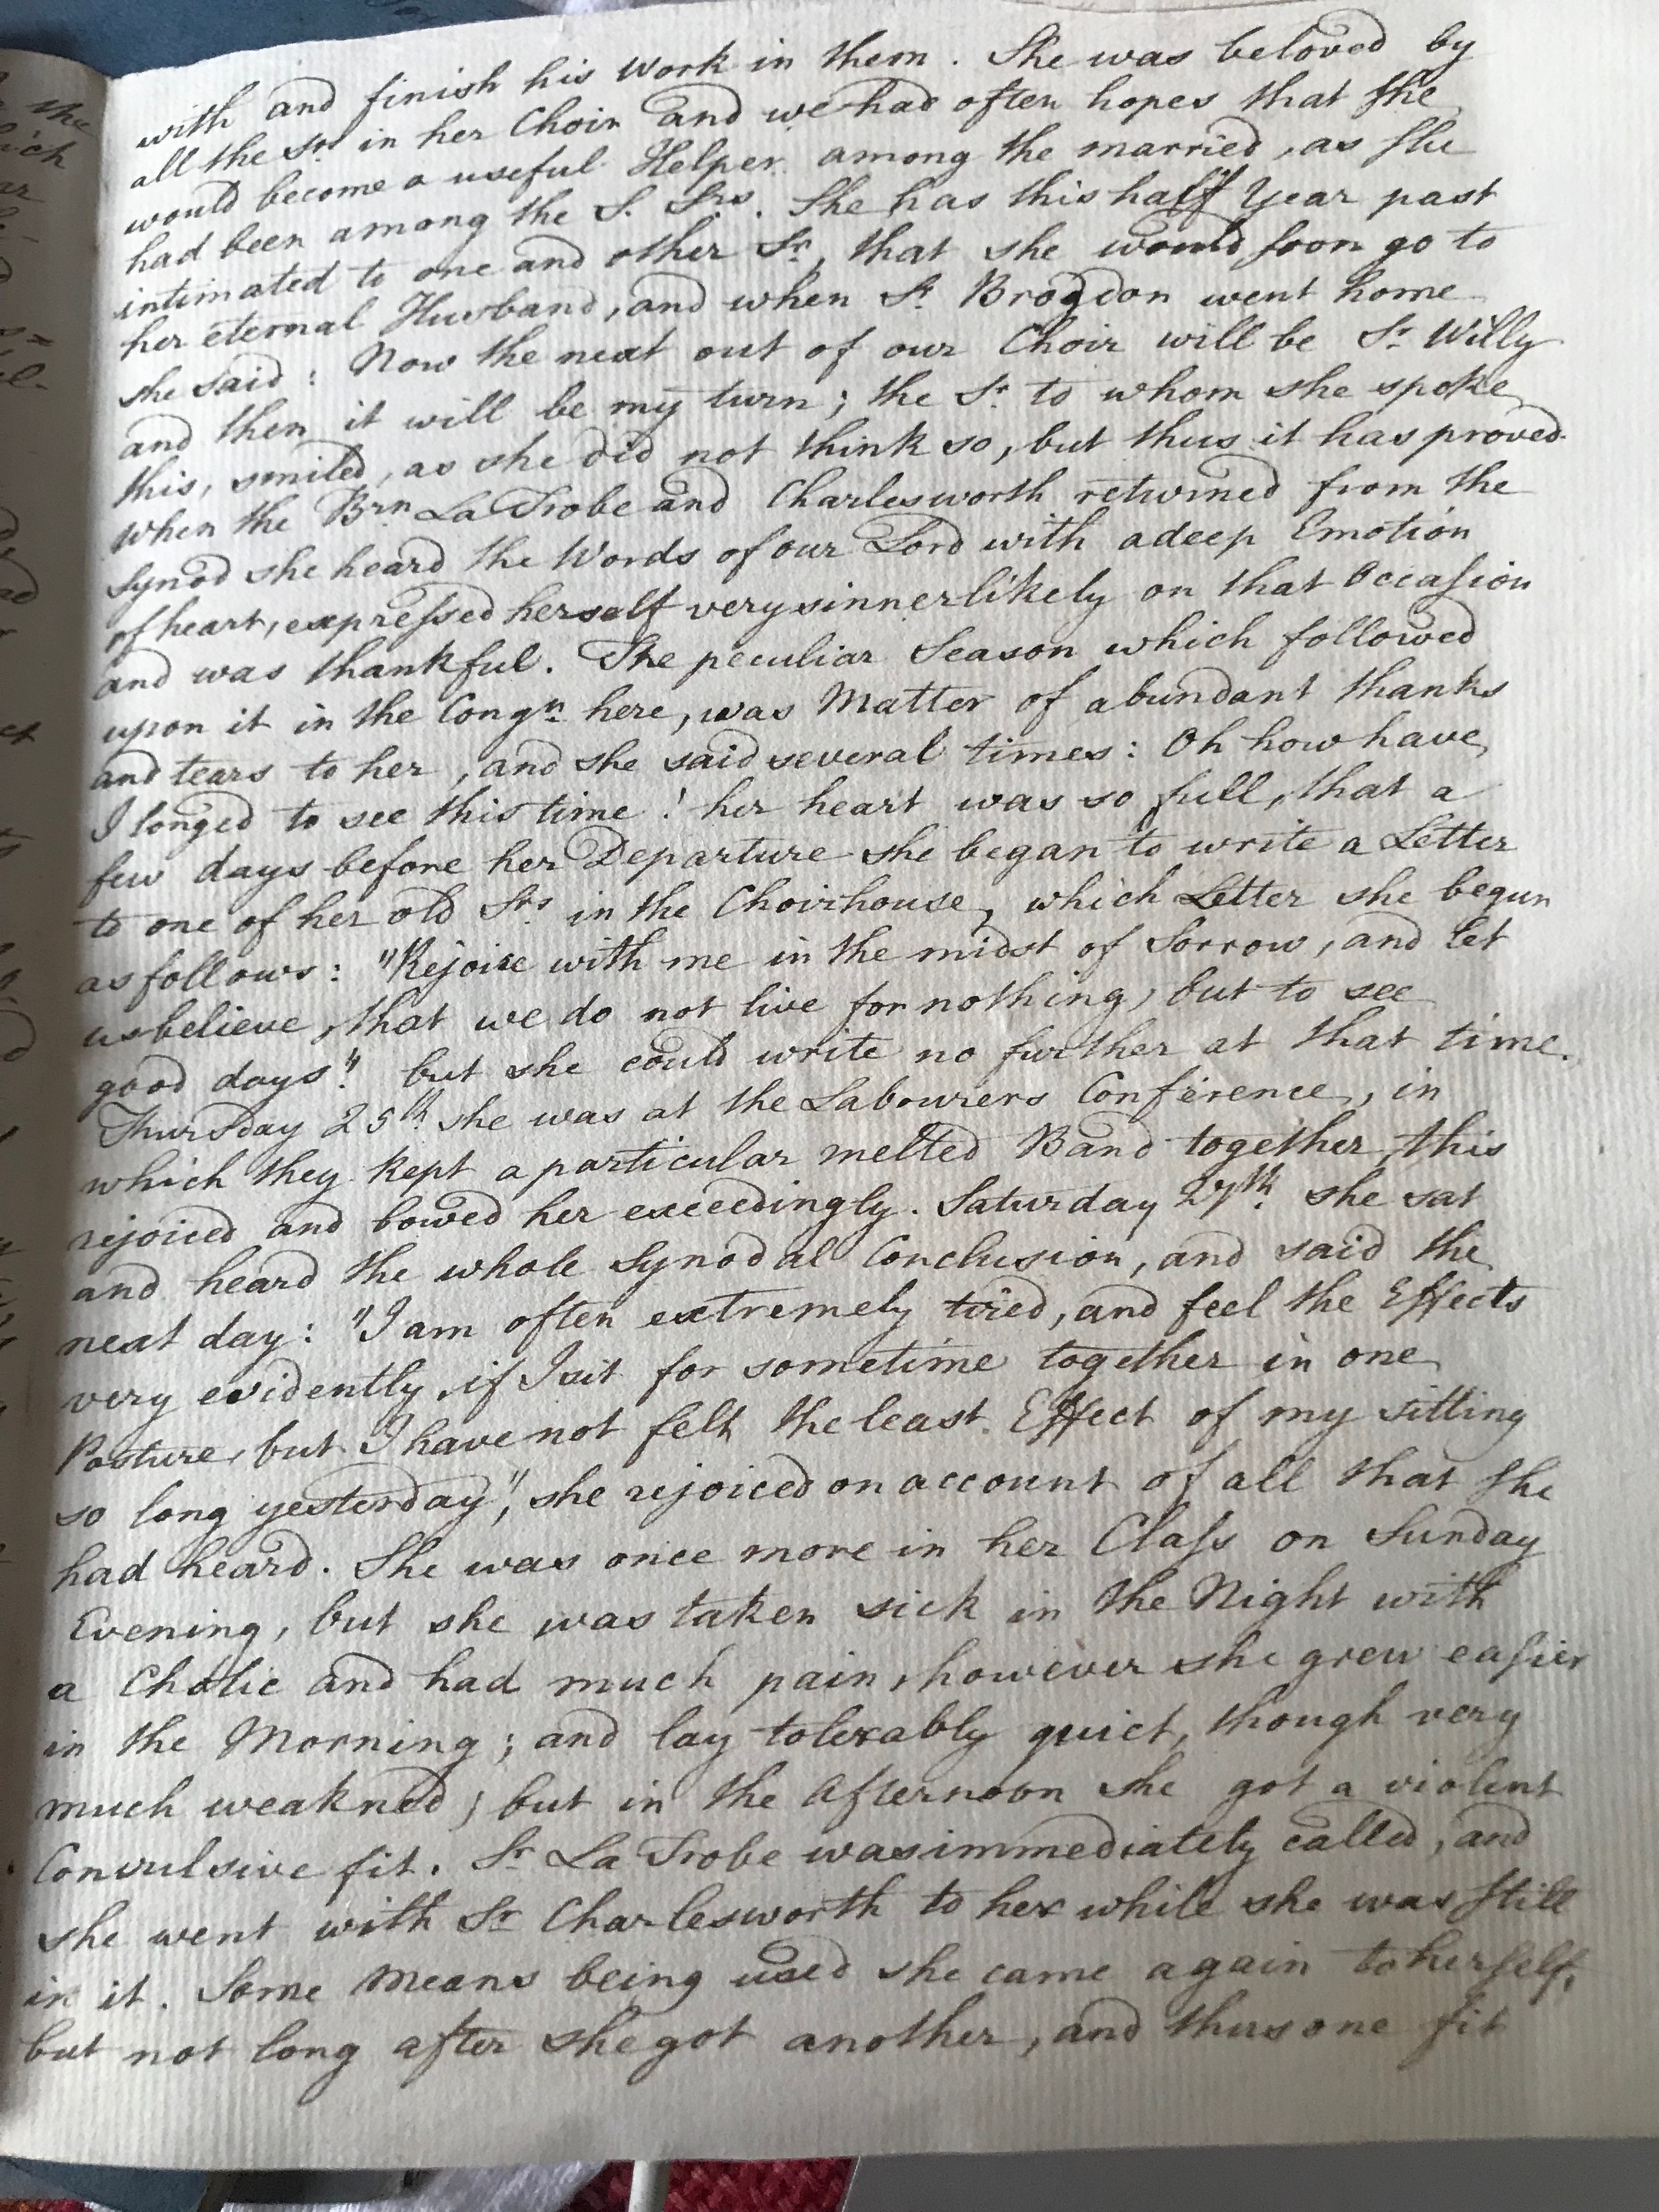 with and finish his Work in them. She was beloved by
all the Srs in her Choir and we had often hopes that she
would become a useful Helper among the married, as she
had been among the S. Srs. She has this half Year past
intimated to one and other Sr, that she would soon go to
her eternal Husband, and when Sr. Brogdon went home
she said: Now the next out of our Choir will be Sr. Willy
and then it will be my turn; the Sr. to whom she spoke
this, smiled, as she did not think so, but thus it has proved.
When the Brn La Trobe and Charlesworth returned from the
Synod she heard the Words of our Lord with a deep Emotion
of heart, expressed herself very sinnerlikely on that Occasion
and was thankful. The peculiar Season which followed
upon it in the Congn. here, was Matter of abundant thanks
and tears to her, and she said several times: Oh how have
I longed to see this time! her heart was so full, that a
few days before her Departure she began to write a Letter
to one of her old Srs in the Choirhouse, which Letter she begun
as follows: "Rejoice with me in the midst of Sorrow, and let
us believe, that we do not live for nothing, but to see
good days". but she could write no further at that time.
Thursday 25th. she was at the Labourers Conference, in
which they kept a particular melted Band together, this
rejoiced and bowed her exceedingly. Saturday 27th. she sat
and heard the whole Synodal Conclusion, and said the
next day: "I am often extremely tired, and feel the Effects
very evidently, if I sit for sometime together in one
Posture, but I have not felt the least Effect of my sitting
so long yesterday", she rejoiced on account of all that she
had heard. She was once more in her Class on Sunday
Evening, but she was taken sick in the Night with
a Cholic and had much pain, however she grew easier
in the Morning; and lay tolerably quiet, though very
much weakned; but in the Afternoon she got a violent
Convulsive fit. Sr La Trobe was immediately called, and
she went with Sr Charlesworth to her while she was still
in it. Some Means being used she came again to herself,
but not long after she got another, and thus one fit